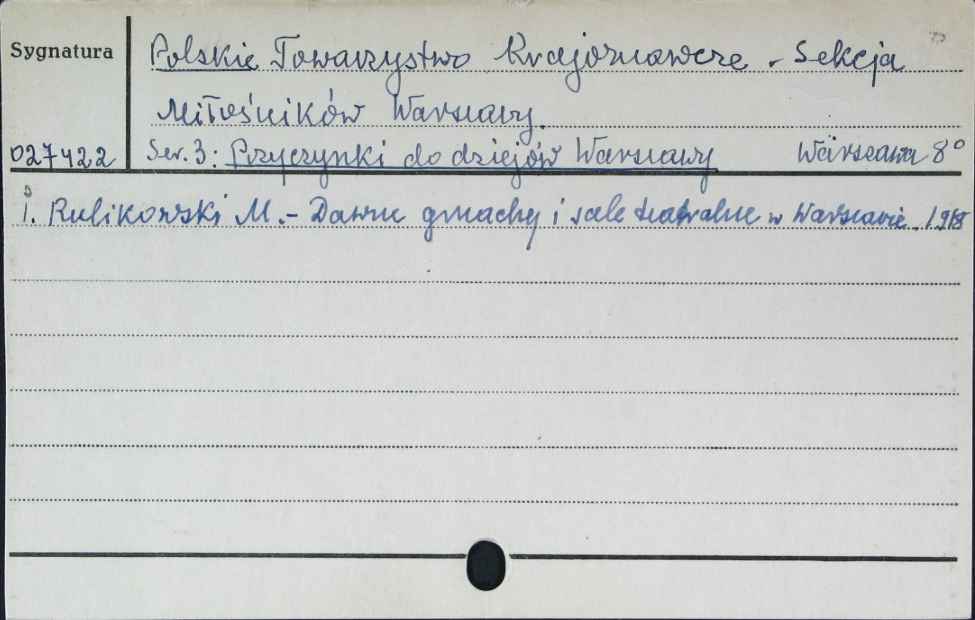 Sygnatura
Polskie Towarzystwo Krajoznawcze - Sekcja
Miłośników Warszawy.
027422 Ser. 3: Przyczynki do dziejów Warszawy Warszawa 8°
1. Rulikowski M. - Dawne gmachy i sale teatralne w Warszawie. 1918